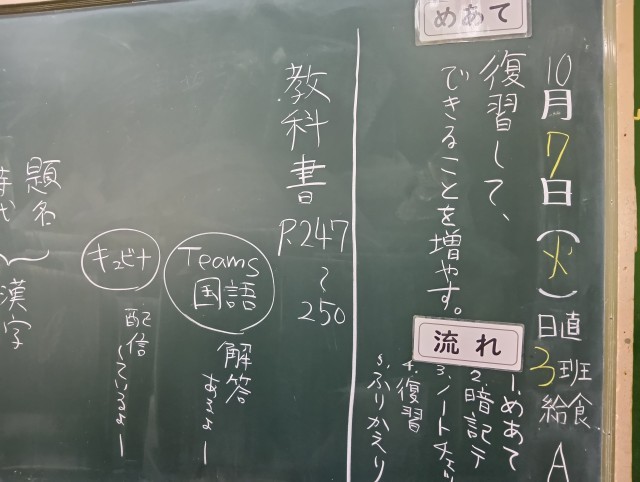 10月7日(火)日直3班給食A
めあて
復習して、
できることを増やす。
流れ
1.めあて
2.暗記テ
3.ノートチェッ
4.復習
5.ふりかえり
教科書P.247~250
Teams
国語
解答あるよー
キュビナ
配信しているよー
題名
漢字
時代